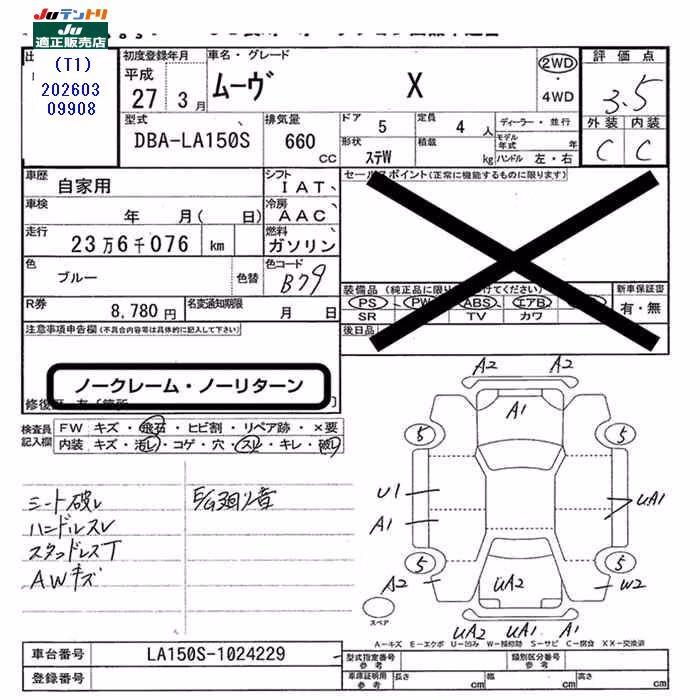 JUテントリ
JU
適正販売店
(T1)
202603
09908
初度登録年月
平成
27 3月
車名・グレード
ムーヴ X
2WD
4WD
評価点
3.5
外装 内装
C C
型式
DBA-LA150S
排気量
660
CC
ドア
5
定員
4 人
ディーラー・並行
モデル年式 年
形状
ステW
積載
kg
ハンドル 左・右
車歴
自家用
シフト
IAT
セールスポイント(正常に機能するものに限ります)
車検
年 月( 日)
冷房
AAC
走行
23万6千076 km
燃料
ガソリン
色
ブルー
色替
色コード
B79
装備品(純正品に限り
けてください)
新車保証書
PS PW ABS エアB
有・無
SR TV カワ
R券
8,780円
名変通知期限
月 日
後日品
注意事項申告欄(不具合内容等は具体的に記入して下さい)
ノークレーム・ノーリターン
検査員
記入欄
FW キズ・飛石・ヒビ割・リペア跡・×要
内装 キズ・汚レ・コゲ・穴・スレ・キレ・破レ
シート破レ
ハンドルスレ
スタッドレスT
AWキズ
E/G廻り音
A2 A2
A1
5 5
U1
UA1
A1
5 5
A2
UA2
W2
UA2 UA1 A1
スペア
A-キズ E-エクボ U-凹み W-補修跡 S-サビ C-腐食 XX-交換済
車台番号
LA150S-1024229
登録番号
型式指定番号
参考
類別区分番号
参考
車庫証明用
参考
長さ cm
幅 cm
高さ cm